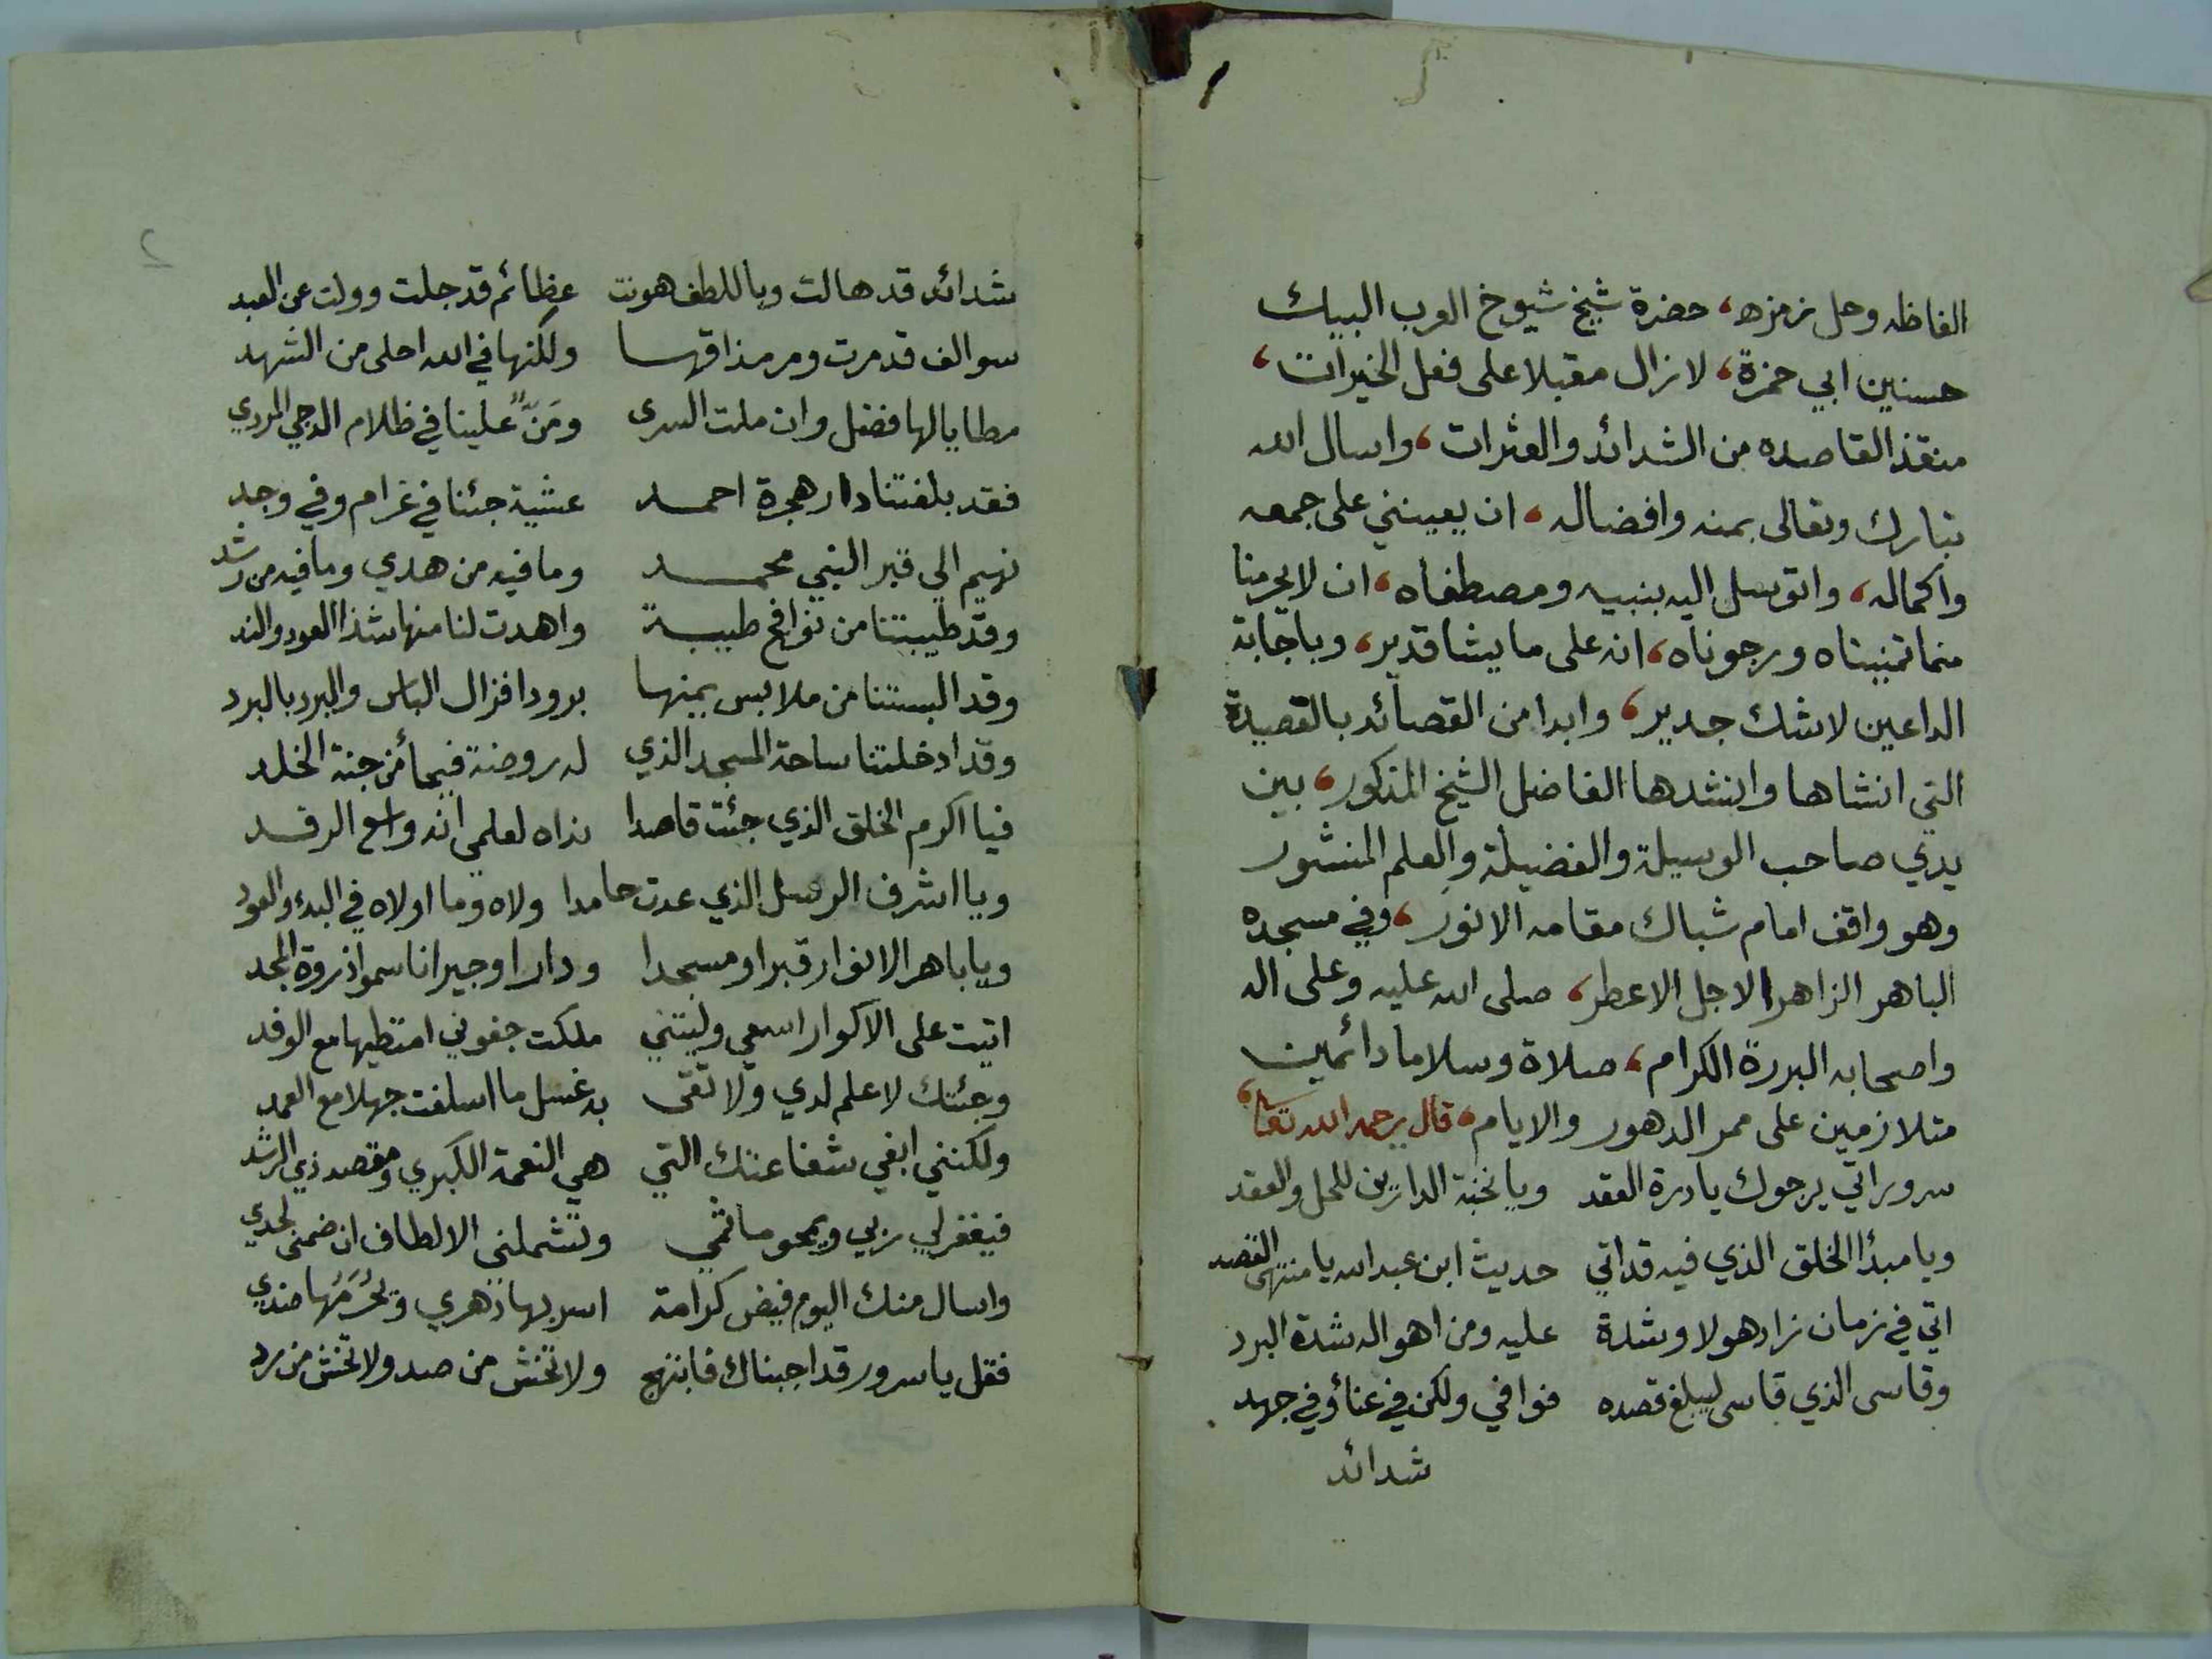 الفاظه وحل رمزه، حضرة شيخ شيوخ العرب البيك
حسنين ابي حمزة، لازال مقبلا على فعل الخيرات،
منقذ القاصده من الشدائد والعثرات، واسال الله
تبارك وتعالى بمنه وافضاله، ان يعينني على جمعه
واكماله، واتوسل اليه بنبيه ومصطفاه، ان لا يحرمنا
مما تمنيناه ورجوناه، انه على ما يشا قدير، وباجابة
الداعين لاشك جدير، وابدا من القصائد بالقصيدة
التي انشاها وانشدها الفاضل الشيخ المذكور، بين
يدي صاحب الوسيلة والفضيلة والعلم المنشور
وهو واقف امام شباك مقامه الانور، وفي مسجده
الباهر الزاهر الاجل الاعطر، صلى الله عليه وعلى اله
واصحابه البررة الكرام، صلاة وسلاما دائمين
متلازمين على ممر الدهور والايام، قال رحمه الله تعا
سرور اتي يرجوك يا درة العقد ويا نخبة الدارين للحل والعقد
ويا مبدأ الخلق الذي فيه قد اتي حديث ابن عبد الله يا منتهى القصد
اتي في زمان زاد هولا وشدة عليه ومن اهواله شدة البرد
وقاسى الذي قاسى ليبلغ قصده فوافي ولكن في عناؤ في جهد
شدائد
2
شدائد قد هالت وباللطف هونت عظائم قد جلت وولت عن العبد
سوالف قد مرت ومر مذاقها ولكنها في الله احلى من الشهد
مطايا لها فضل وان ملت السرى ومَنٌّ علينا في ظلام الدجي المردي
فقد بلغتنا دار هجرة احمد عشية جئنا في غرام وفي وجد
نهيم الي قبر النبي محمد وما فيه من هدي وما فيه من رشد
وقد طيبتنا من نوافح طيبة واهدت لنا منها شذا العود والند
وقد البستنا من ملابس يمنها برودا فزال الباس والبرد بالبرد
وقد ادخلتنا ساحة المسجد الذي له روضة فيحأ من جنة الخلد
فيا اكرم الخلق الذي جئت قاصدا نداه لعلمي انه واسع الرفد
ويا اشرف الرسل الذي عدت حامدا ولاه وما اولاه في البدء والعود
ويا باهر الانوار قبرا ومسجدا ودارا وجيرانا سموا ذروة المجد
اتيت على الاكوار اسعي وليتني ملكت جفوني امتطيها مع الوفد
وجئتك لا علم لدي ولا تقى به غسل ما اسلفت جهلا مع العمد
ولكنني ابغي شفاعتك التي هي النعمة الكبري ومقصد ذي الرشد
فيغفر لي ربي ويمحو ماثمي وتشملني الالطاف ان ضمني لحدي
واسال منك اليوم فيض كرامة اسر بها دهري ويُحْرَمُها ضدي
فقل يا سرور قد اجبناك فابتهج ولا تخش من صد ولا تخش من رد